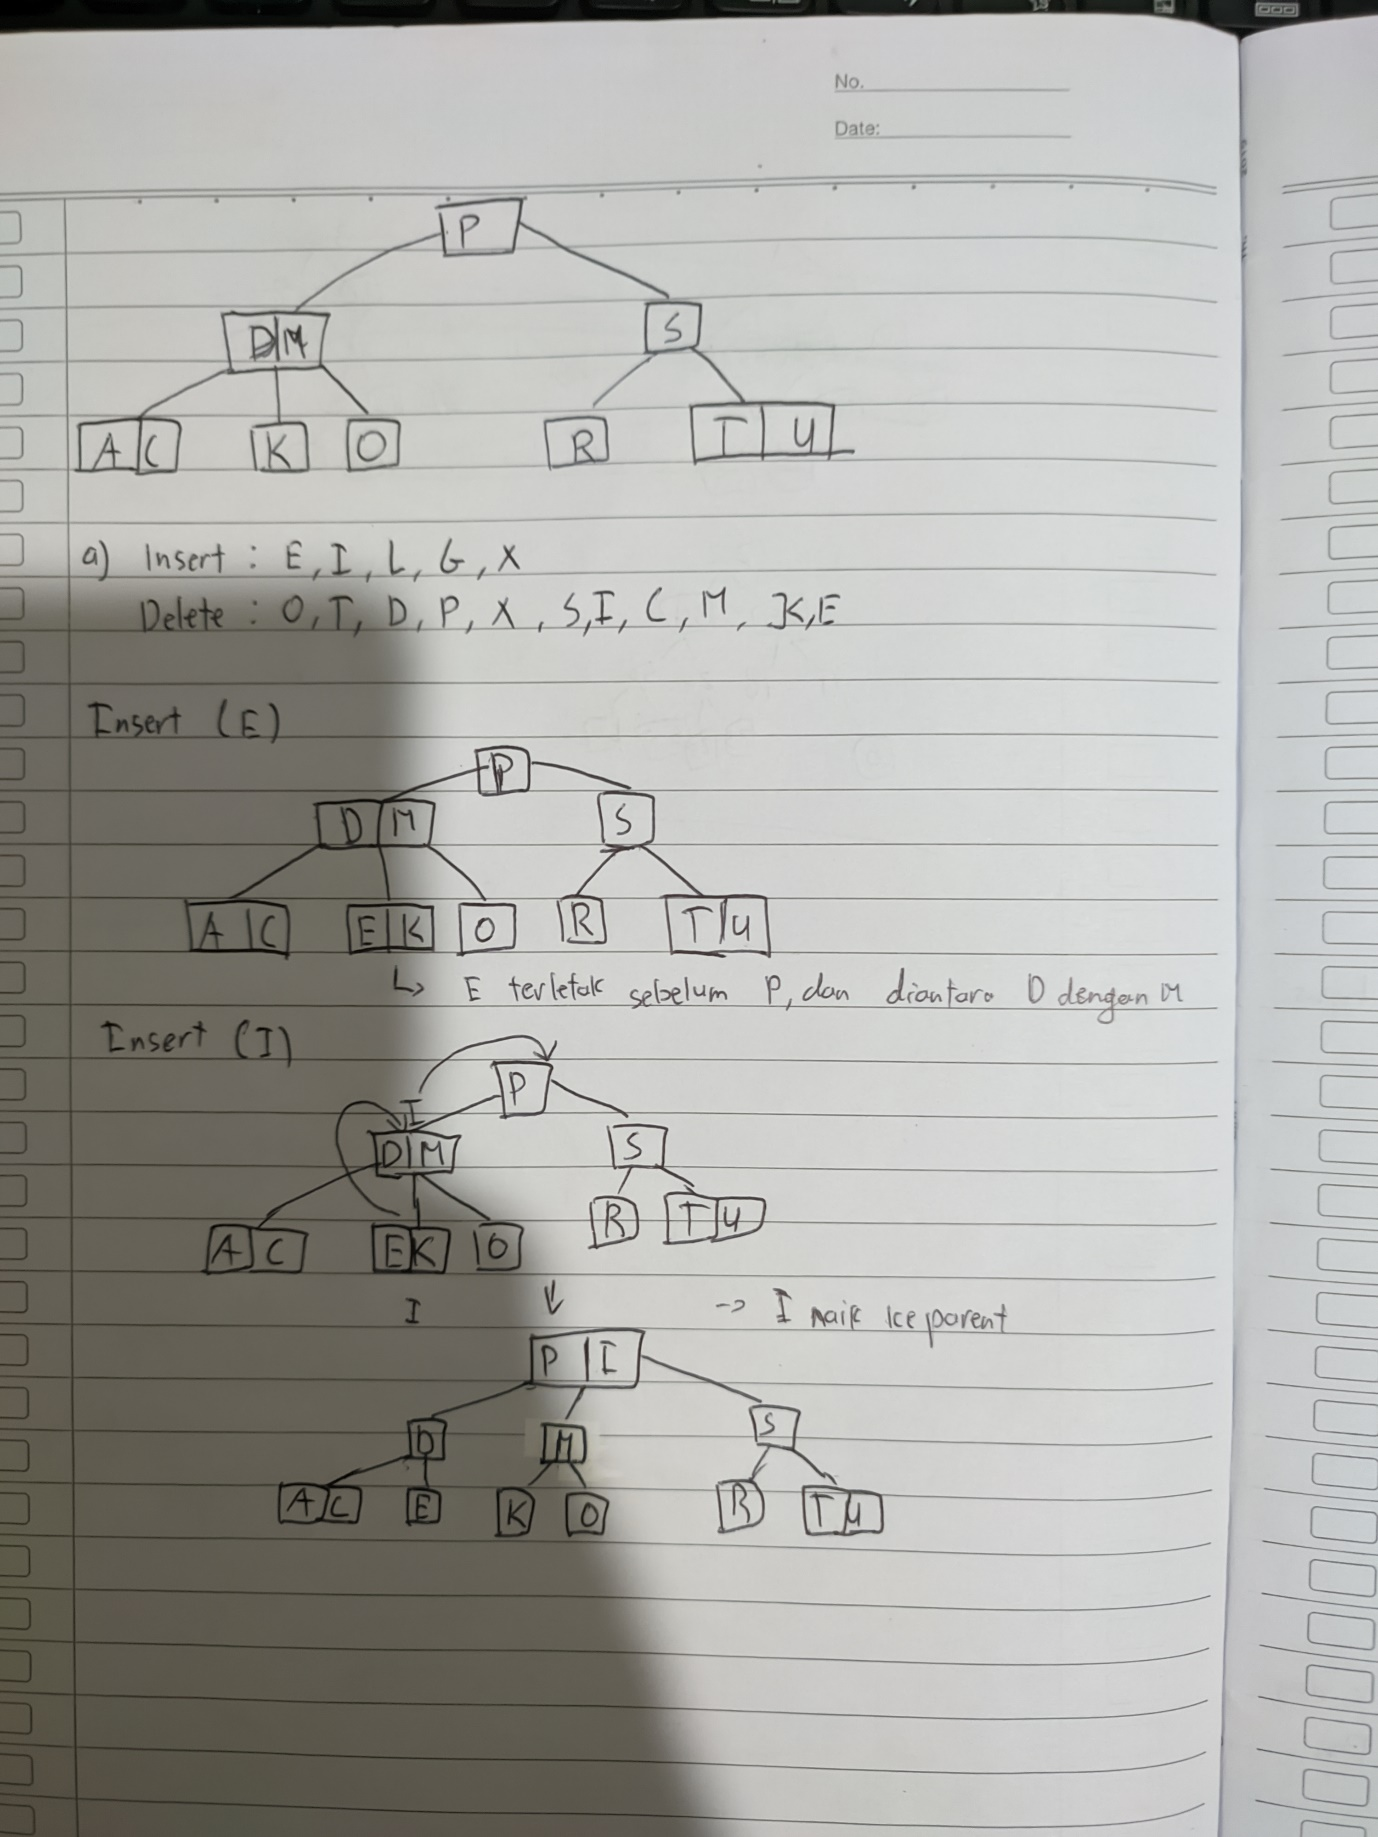 No.
Date:
P
D M S
A C K O R T U
a) Insert : E, I, L, G, X
Delete : O, T, D, P, X, S, I, C, M, K, E
Insert (E)
P
D M S
A C E K O R T U
↳ E terletak sebelum P, dan diantara D dengan M
Insert (I)
P
I
D M S
A C E K O R T U
I ↓ -> I naik ke parent
P I
D M S
A C E K O R T U